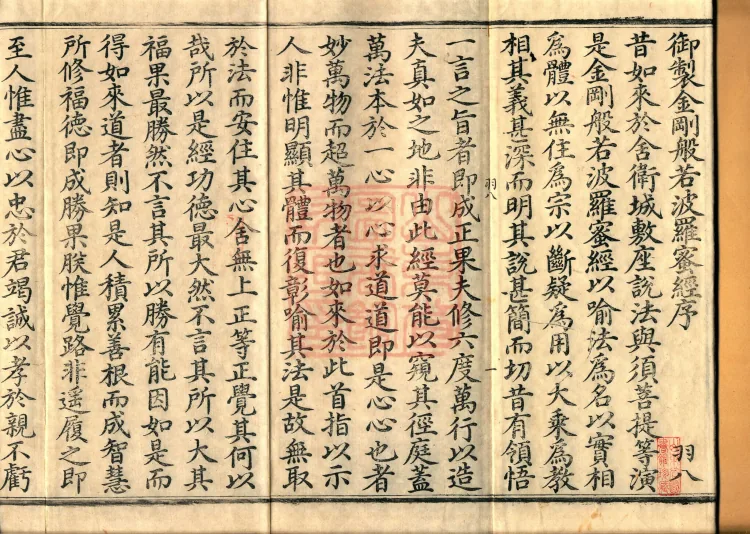 御製金剛般若波羅蜜經序 羽八
昔如來於舍衛城敷座說法與須菩提等演
是金剛般若波羅蜜經以喻法為名以實相
為體以無住為宗以斷疑為用以大乘為教
相其義甚深而明其說甚簡而切昔有領悟
羽八 一
一言之旨者即成正果夫修六度萬行以造
夫真如之地非由此經莫能以窺其徑庭蓋
萬法本於一心以心求道道即是心心也者
妙萬物而超萬物者也如來於此首指以示
人非惟明顯其體而復彰喻其法是故無取
於法而安住其心舍無上正等正覺其何以
哉所以是經功德最大然不言其所以大其
福果最勝然不言其所以勝有能因如是而
得如來道者則知是人積累善根而成智慧
所修福德即成勝果朕惟覺路非遥履之即
至人惟盡心以忠於君竭誠以孝於親不虧